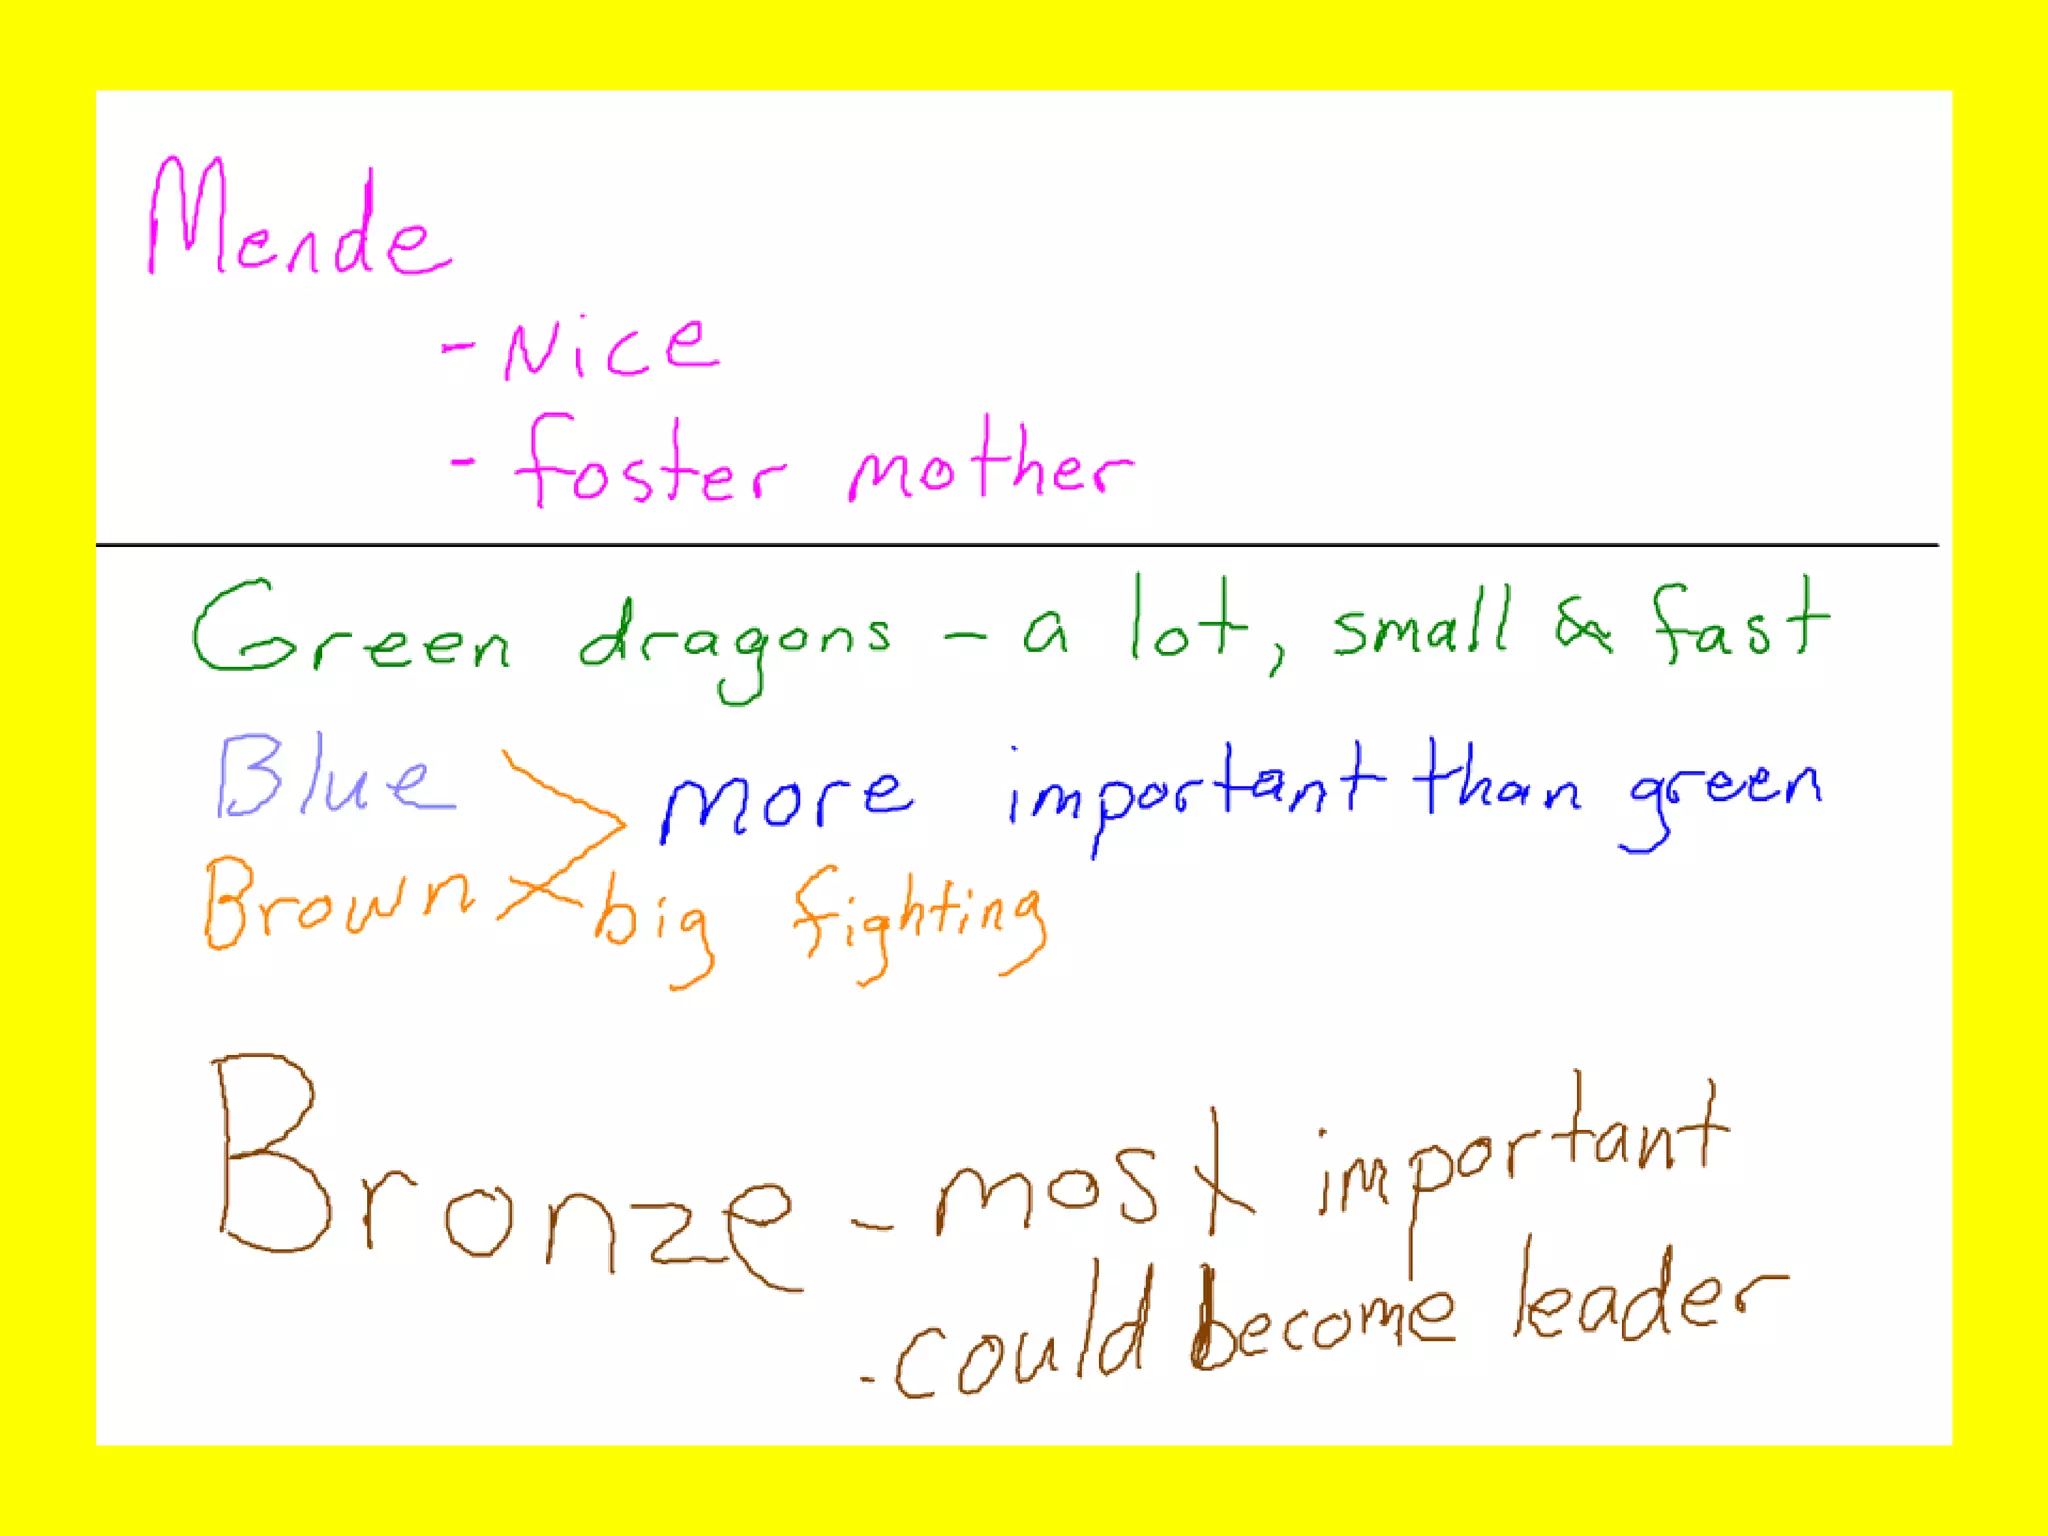 Mende
- Nice
- foster mother
Green dragons - a lot, small & fast
Blue more important than green
Brown big fighting
Bronze - most important
- could become leader